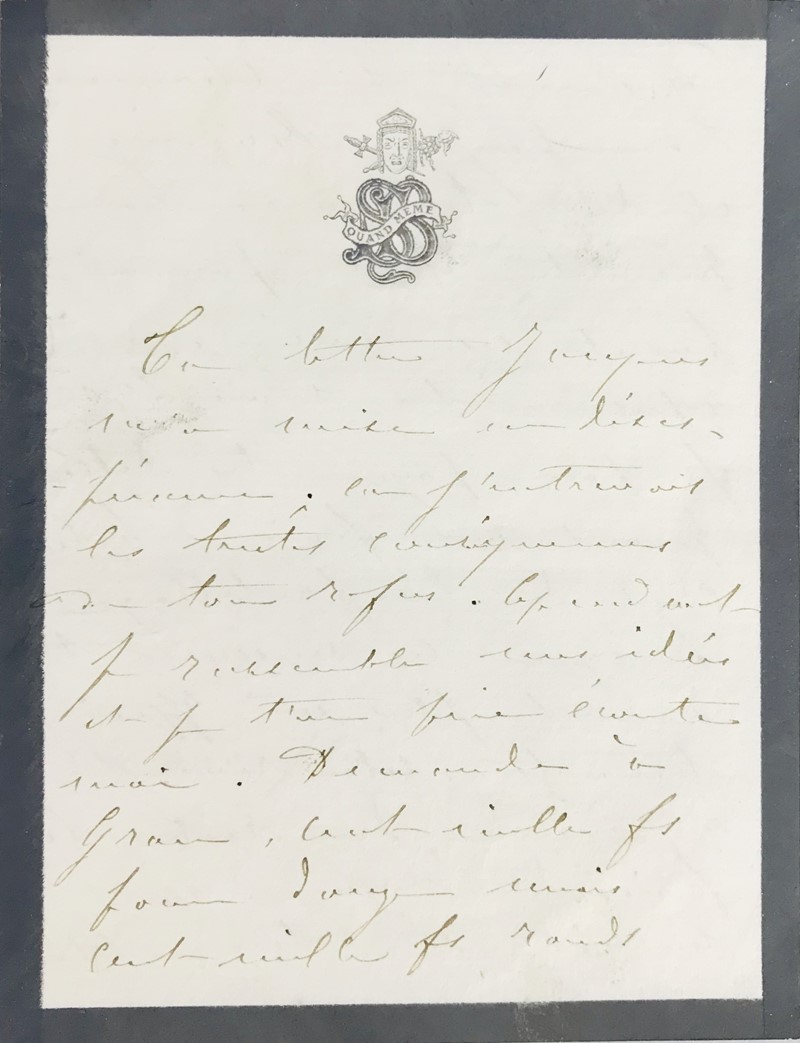 SB
QUAND MEME
Ta lettre Jacques
m'a mise en déses-
pérance. Car j'entrevois
les tristes conséquences
de ton refus. Cependant
je rassemble mes idées
et je t'en prie écoute
moi. Demande à
Grau, cent mille fs
pour douze mois
cent mille fs ronds